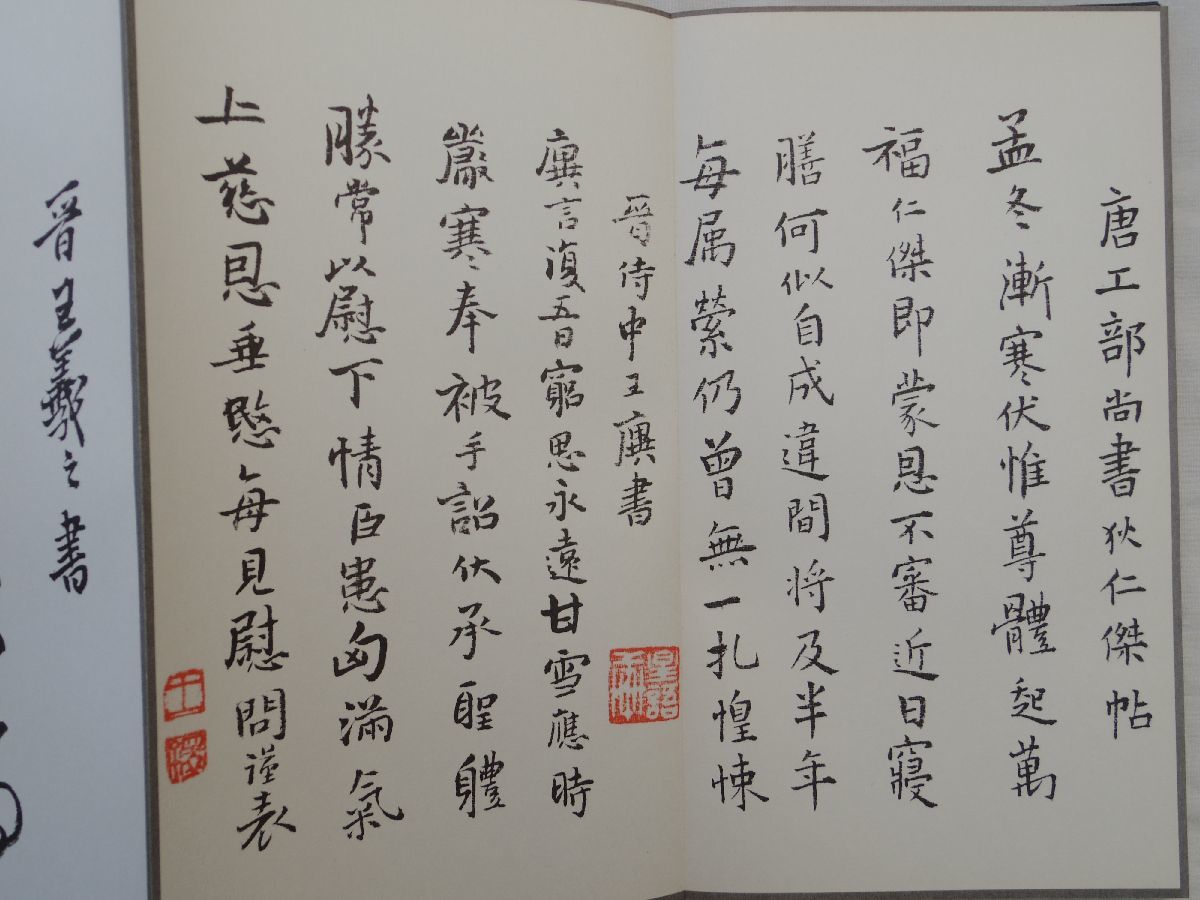 唐工部尚書狄仁傑帖
孟冬漸寒伏惟尊體起萬
福仁傑即蒙恩不審近日寢
膳何似自成違間將及半年
每属縈仍曾無一扎惶悚
晉侍中王廙書
廙言復吾日窮思永遠甘雪應時
嚴寒奉被手詔伏承聖體
勝常以慰下情臣患匈滿氣
上慈恩垂愍每見慰問謹表
晉王羲之書